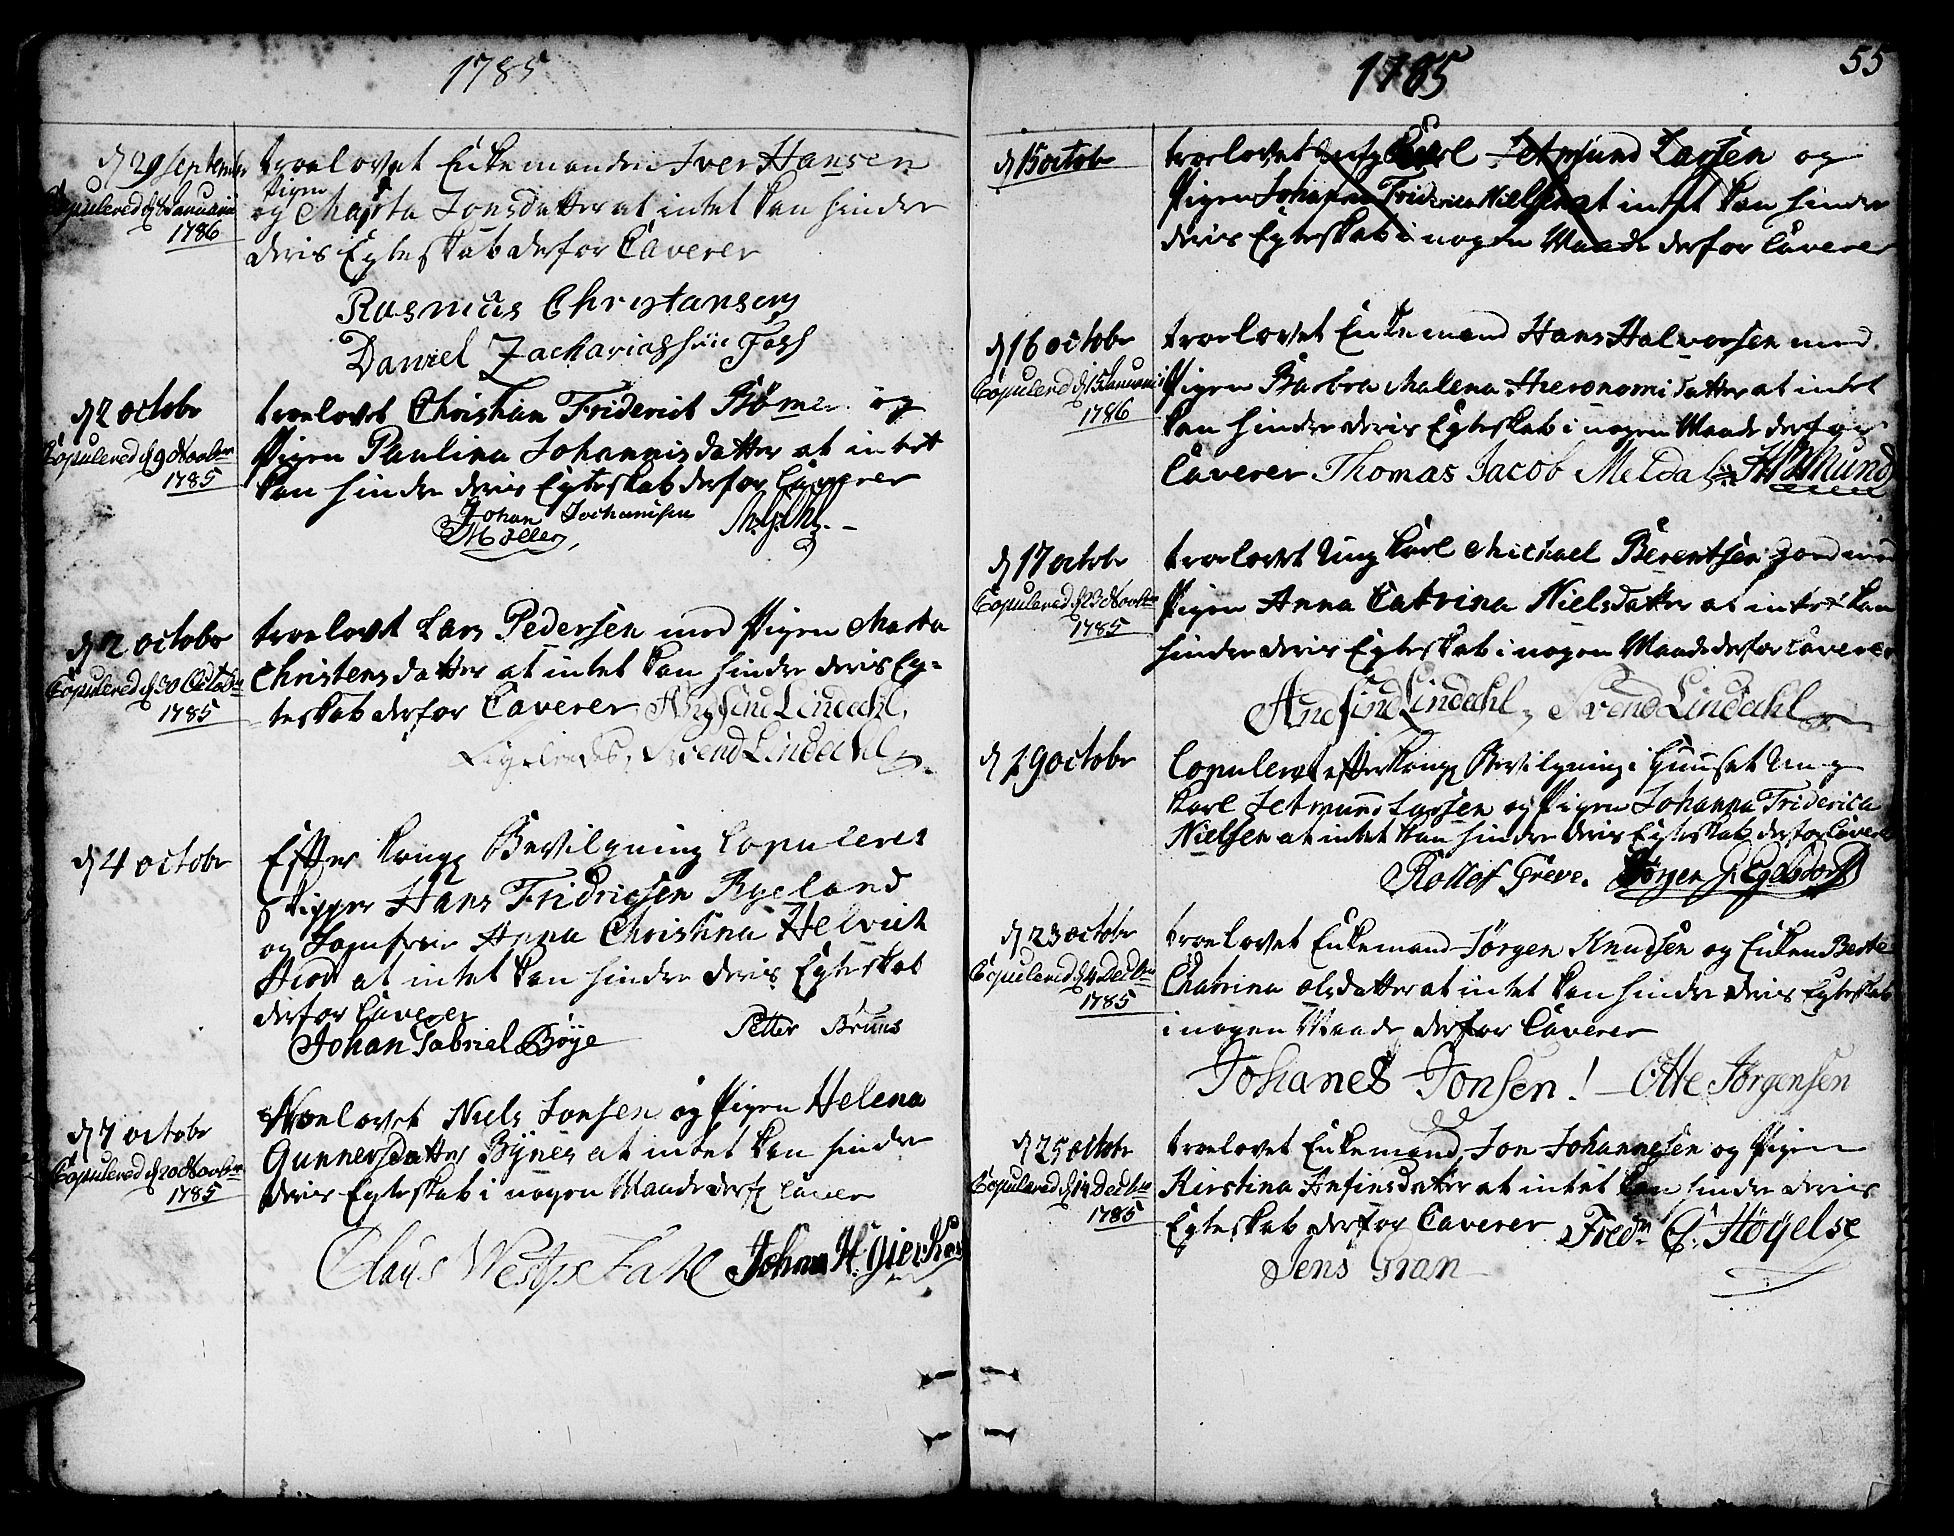 1785
d 29 September
Copulered d 8 Januarii
1786
troelovet Enkemanden Iver Hansen
Pigen
og Marta Jonsdatter at intet kan hindre
deris Egteskab derfor Caverer
Rasmus Christansen
Daniel Zachariassøn Fass
d 2 octobr
Copulered d 9 Novbr
1785
troelovet Christian Friderich Bömer og
Pigen Paulina Johannisdatter at intet
kan hindre deris Egteskab derfor Caverer
Johan Jochumsen
Möller
d 2 octobr
Copulered d 30 Octobr
1785
troelovet Lars Pedersen med Pigen Marta
Christensdatter at intet kan hindre deris Eg-
teskab derfor Caverer Lindahl,
Ligeledes, Svend Lindahl
d 4 octobr
Efter Kongl Bevilgning Copuleret
Skipper Hans Fridricsen Ryeland
og Jomfrue Anna Christina Helvich
at intet kan hindre deris Egteskab
derfor Caverer
Johan Gabriel Böye Petter Bruns
d 7 octobr
Copulered d 20 Novbr
1785
troelovet Niels Jonsen og Pigen Helena
Gunnersdatter Bÿnes at intet kan hindre
deris Egteskab i nogen Maade derf caver
Claus Westpe Fahl Johan H. Gierker
1785
55
d 15 octobr
troelovet Ung Karl Setmund Larsen og
Pigen Johanna Friderica Nielsen at intet kan hindre
deris Egteskab i nogen Maade derfor Caverer
d 16 octobr
Copulered d 15 Januarii
1786
troelovet Enkemand Hans Halvorsen med
Pigen Barbra Malena Hieronomi datter at intet
kan hindre deris Egteskab i nogen Maade derfor
Caverer Thomas Jacob Meldal Mund
d 17 octobr
Copulered d 23 Novbr
1785
troelovet Ung Karl Michael Berentsen med
Pigen Anna Catrina Nielsdatter at intet kan
hindre deris Egteskab i nogen Maade derfor Caverer
And find Lindahl, Svend Lindahl
d 19 octobr
Copuleret efter Kongl Bevilgning i Huuset Ung
Karl Setmund Larsen og Pigen Johanna Friderica
Nielsen at intet kan hindre deris Egteskab derfor Caverer
Rollof Greve. Jørgen
d 23 octobr
Copulered d 4 Decbr
1785
troelovet Enkemand Jörgen Knudsen og Enken Berte
Chatrina olsdatter at intet kan hindre deris Egteskab
i nogen Maade derfor Caverer
Johanes Jonsen! Otte Jørgensen
d 25 octobr
Copulered d 14 Decbr
1785
troelovet Enkemand Jon Johannesen og Pigen
Kirstina Anfinsdatter at intet kan hindre deris
Egteskab derfor Caverer Fredr C: Höÿelse
Jens Gran